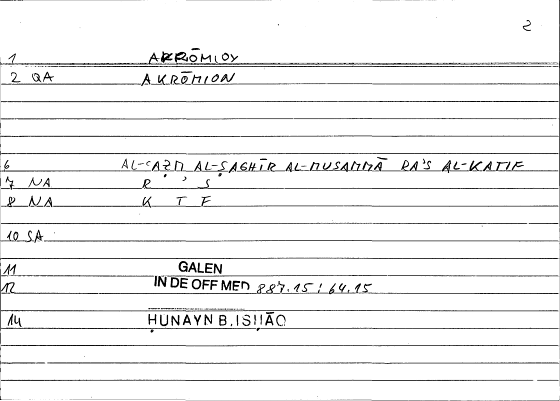 2
1 AKRŌMIOY
2 QA AKRŌMION
6 AL-ʿAẒM AL-ṢAGHĪR AL-MUSAMMĀ RA'S AL-KATIF
7 NA R ' S
8 NA K T F
10 SA
11 GALEN
12 IN DE OFF MED 887.15 / 64.15
14 ḤUNAYN B. ISḤĀQ